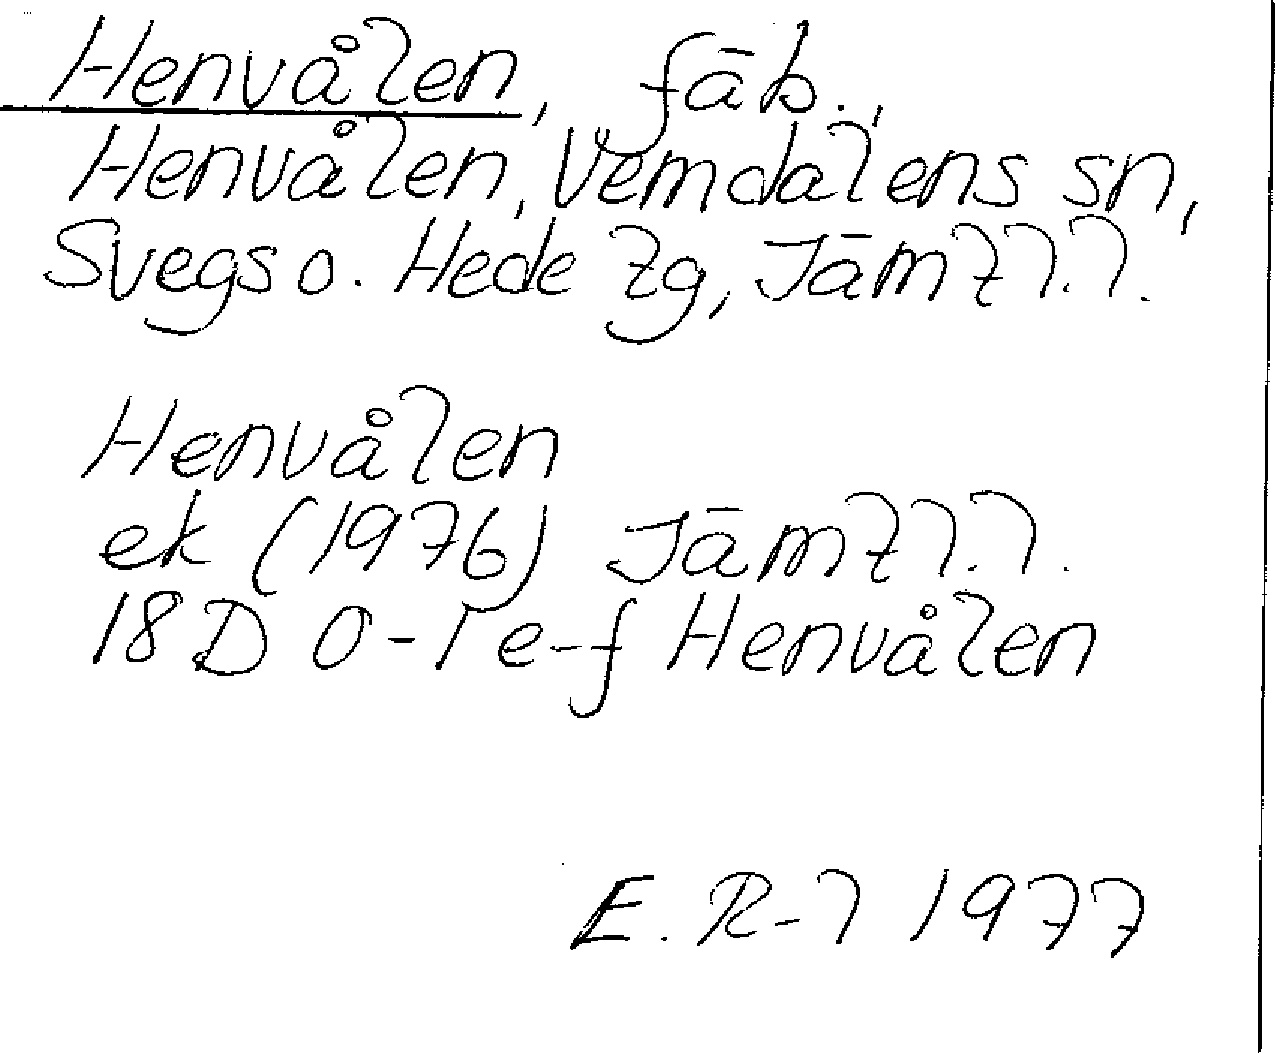 Henvålen, fäb.,
Henvålen, Vemdalens sn,
Svegs o. Hede tg, Jämtl.l.
Henvålen
ek (1976) Jämtl.l.
18D 0-1 e-f Henvålen
E. R-l 1977